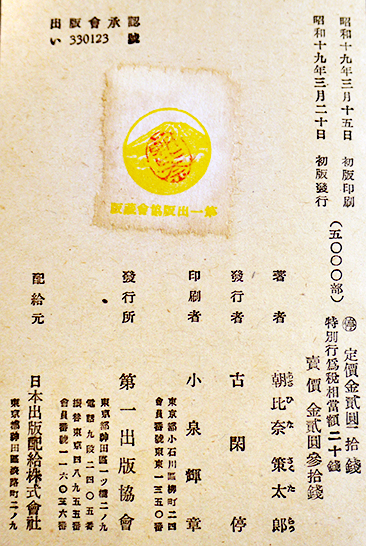 認承會版出
號 330123 い
昭和十九年三月十五日 初版印刷
昭和十九年三月二十日 初版發行
(五〇〇〇部)
停 定價金貳圓 拾錢
特別行爲税相當額 二十錢
賣價 金貳圓參拾錢
著者 朝比奈策太郎
あさひなさくたらう
發行者 古閑停
印刷者 小泉輝章
東京都小石川區柳町二四
會員番號東東一三五〇番
發行所 第一出版協會
東京都神田區一ツ橋二ノ九
電話九段二四〇五番
振替東京四八九五五番
會員番號一一六〇五六番
配給元 日本出版配給株式會社
東京都神田區淡路町二ノ九
第一出版協會藏版